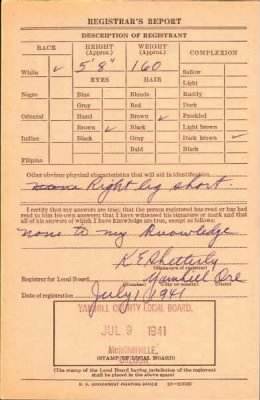 REGISTRAR'S REPORT
DESCRIPTION OF REGISTRANT
RACE HEIGHT (Approx.) WEIGHT (Approx.) COMPLEXION
White ✓ 5' 8" 160 Sallow
EYES HAIR Light
Negro Blue Blonde Ruddy
Gray Red Dark
Oriental Hazel Brown ✓ Freckled
Brown ✓ Black Light brown
Indian Black Gray Dark brown ✓
Bald Black
Filipino
Other obvious physical characteristics that will aid in identification
none Right leg short.
I certify that my answers are true; that the person registered has read or has had
read to him his own answers; that I have witnessed his signature or mark and that
all of his answers of which I have knowledge are true, except as follows:
none to my knowledge
K E Shetterly
(Signature of registrar)
Registrar for Local Board Yamhill Ore
(Number) (City or county) (State)
Date of registration July 1 1941
YAMHILL COUNTY LOCAL BOARD.
JUL 9 1941
McMINNVILLE,
OREGON
(STAMP OF LOCAL BOARD)
(The stamp of the Local Board having jurisdiction of the registrant
shall be placed in the above space)
U. S. GOVERNMENT PRINTING OFFICE